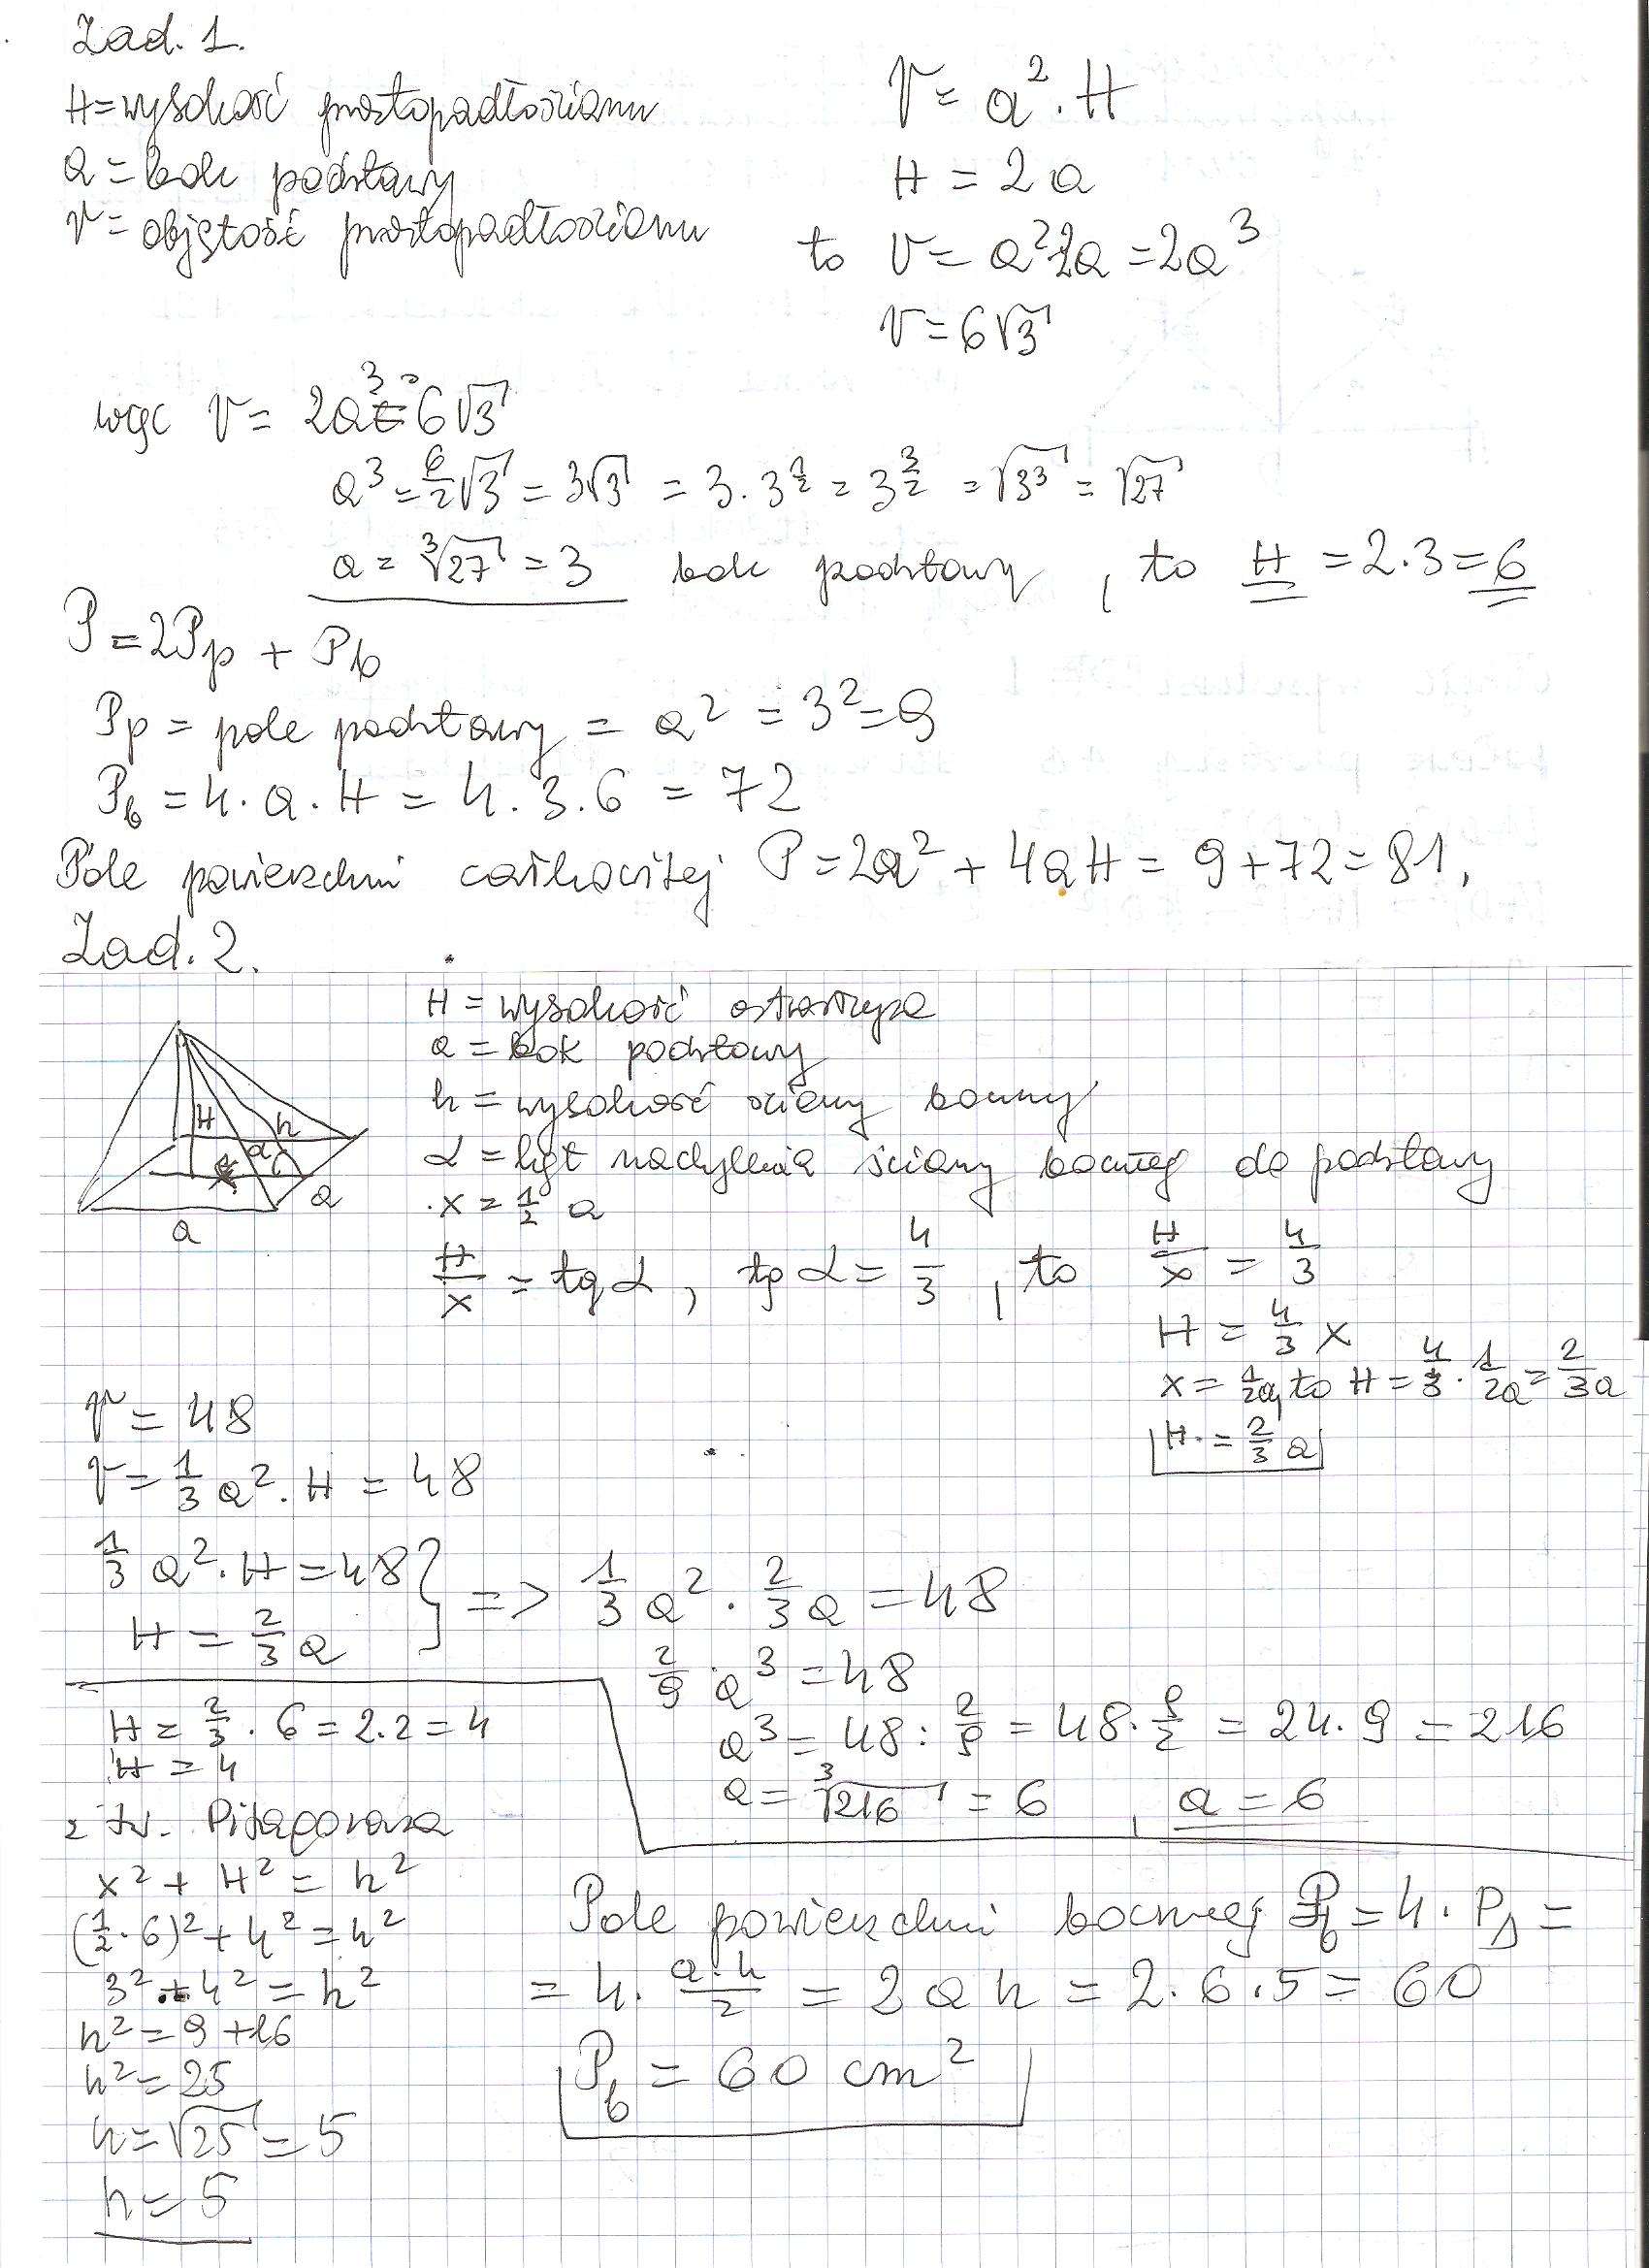 Zad. 1.
H = wysokość prostopadłościanu
a = bok podstawy
V = objętość prostopadłościanu
V = a² · H
H = 2a
to V = a² 2a = 2a³
V = 6√3
więc V = 2a³ = 6√3
a³ = 6/2 √3 = 3√3 = 3 · 3^(1/2) = 3^(3/2) = √3³ = √27
a = ³√27 = 3 bok podstawy, to H = 2·3 = 6
P = 2Pp + Pb
Pp = pole podstawy = a² = 3² = 9
Pb = 4 · a · H = 4 · 3 · 6 = 72
Pole powierzchni całkowitej P = 2a² + 4aH = 9 + 72 = 81,
Zad. 2.
H = wysokość ostrosłupa
a = bok podstawy
h = wysokość ściany bocznej
α = kąt nachylenia ściany bocznej do podstawy
x = 1/2 a
H/x = tg α, tg α = 4/3, to H/x = 4/3
H = 4/3 x
x = 1/2a, to H = 4/3 · 1/2a = 2/3a
H = 2/3 a
H
h
α
a
a
V = 48
V = 1/3 a² · H = 48
1/3 a² · H = 48 } => 1/3 a² · 2/3 a = 48
H = 2/3 a
2/9 · a³ = 48
a³ = 48 : 2/9 = 48 · 9/2 = 24 · 9 = 216
a = ³√216 = 6, a = 6
H = 2/3 · 6 = 2·2 = 4
H = 4
z tw. Pitagorasa
x² + H² = h²
(1/2 · 6)² + 4² = h²
3² + 4² = h²
h² = 9 + 16
h² = 25
h = √25 = 5
h = 5
Pole powierzchni bocznej Pb = 4 · PΔ =
= 4 · a·h/2 = 2ah = 2 · 6 · 5 = 60
Pb = 60 cm²